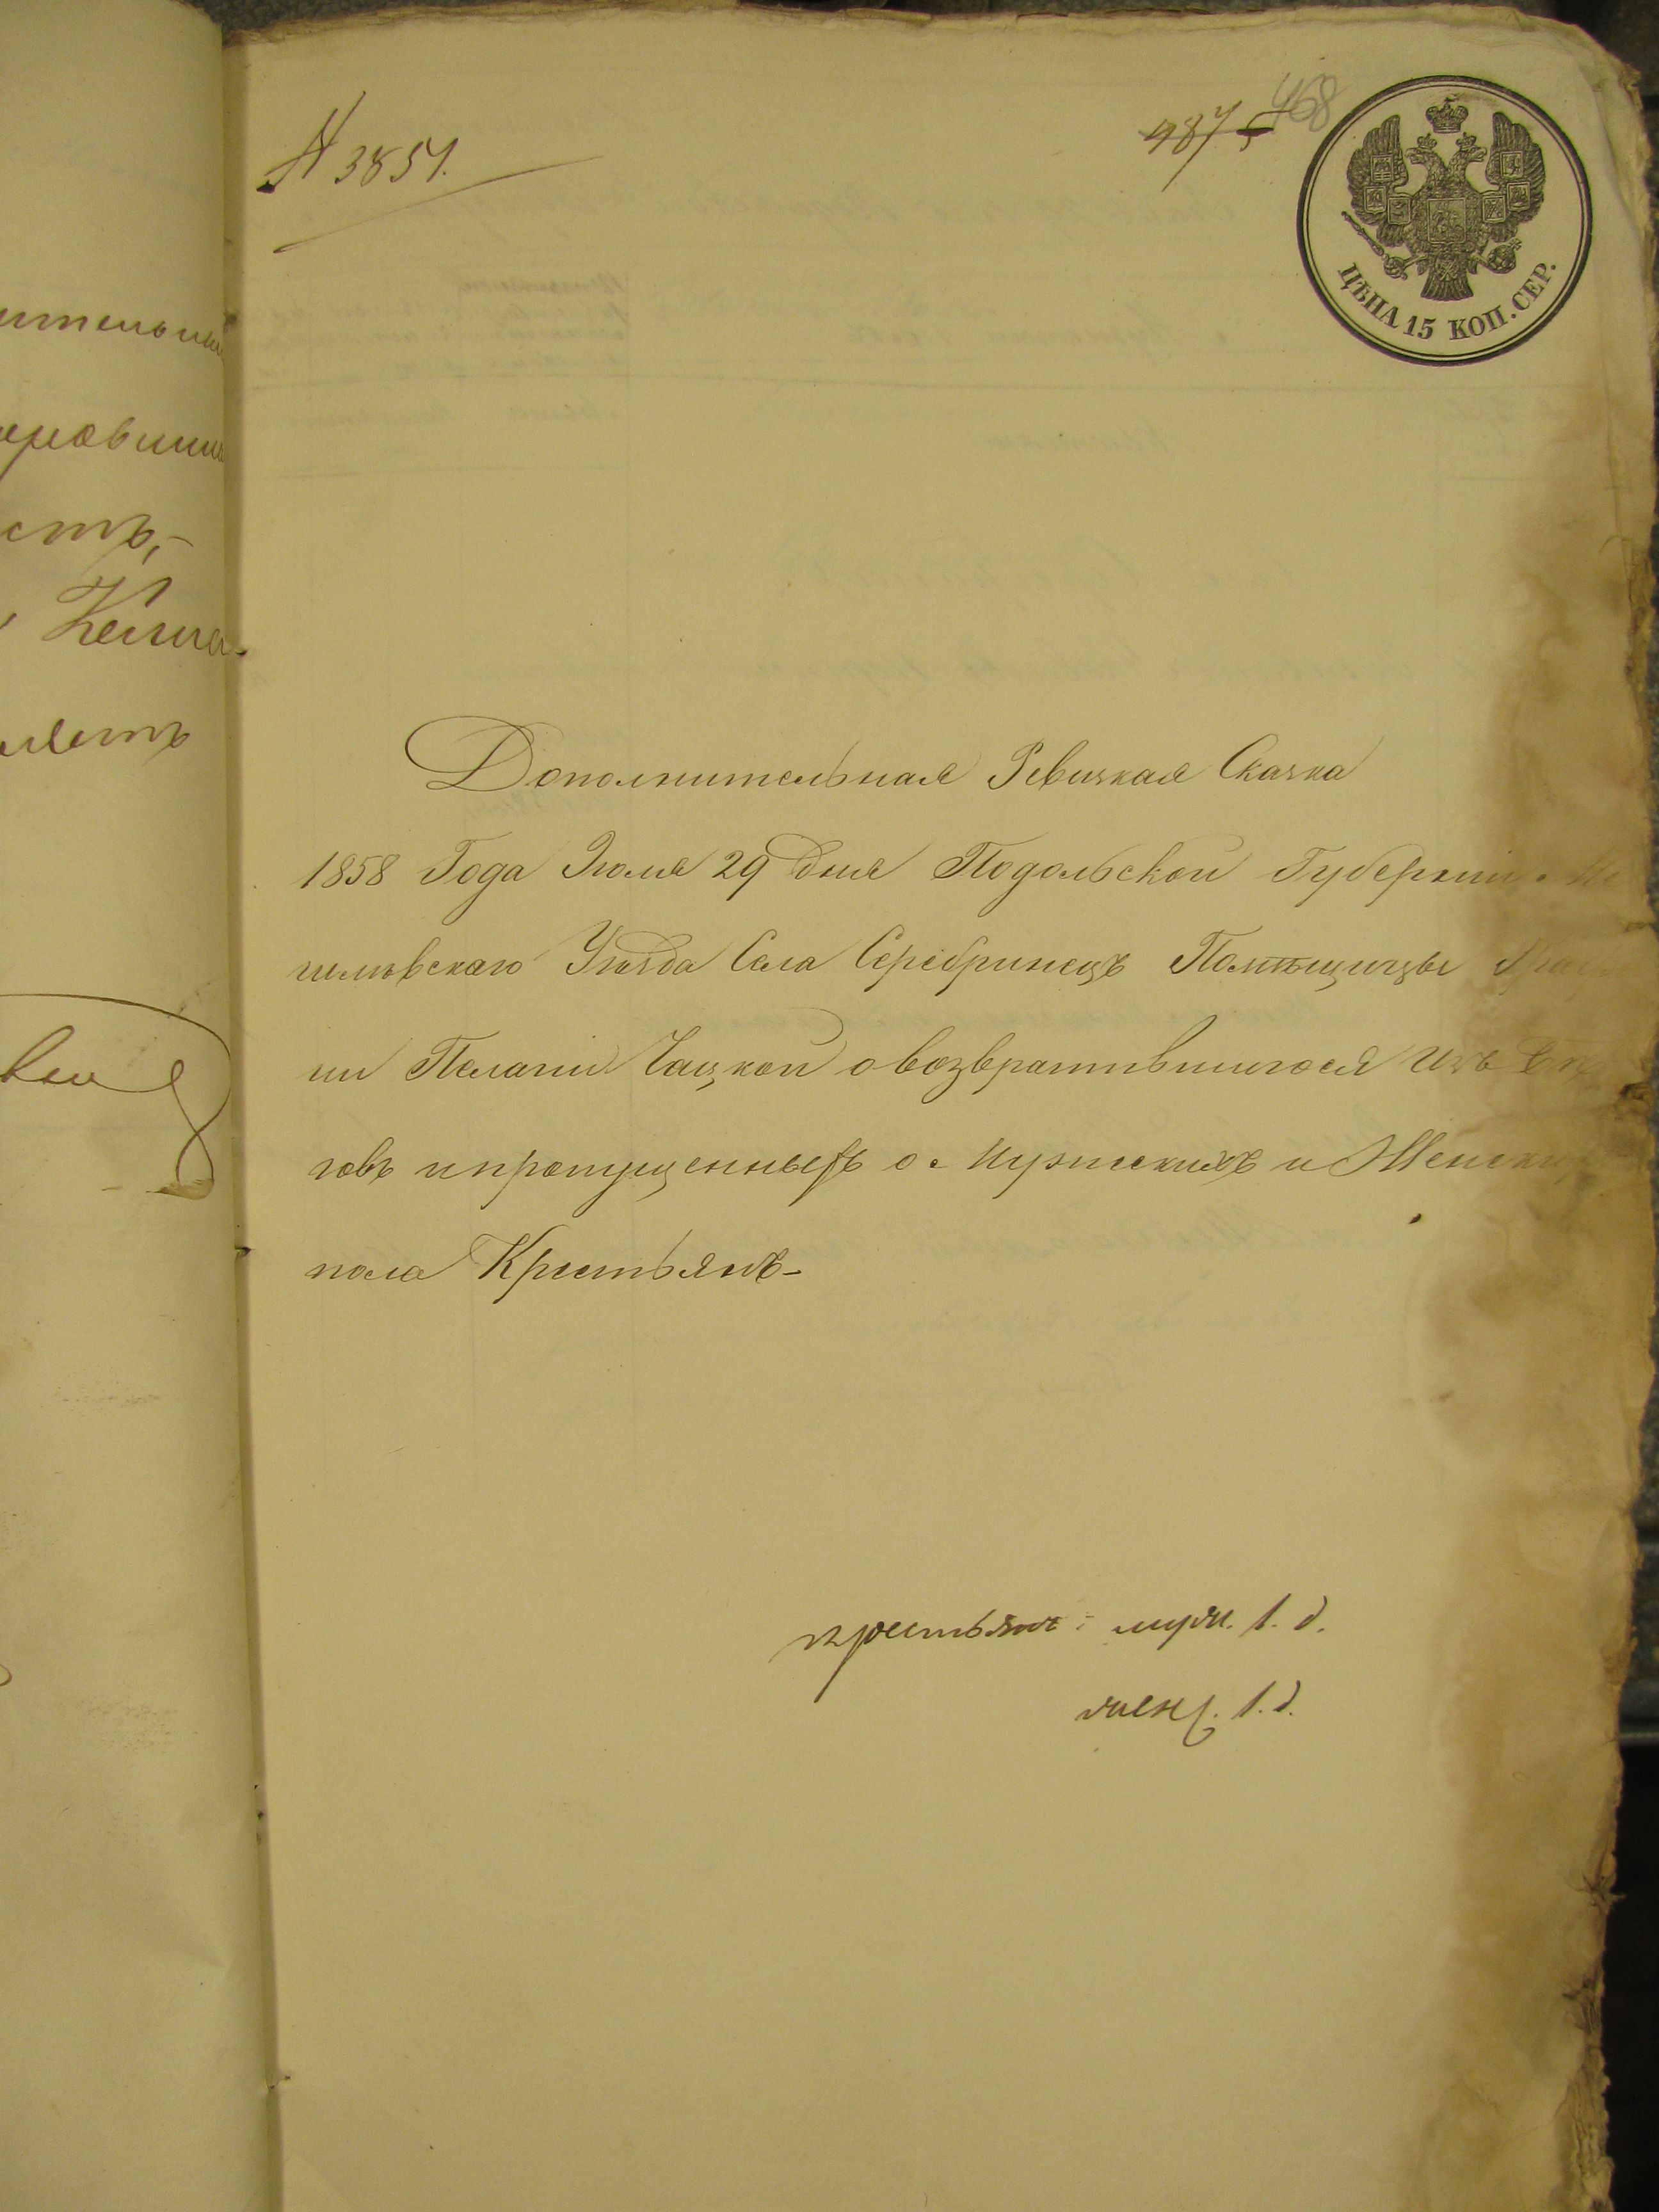 № 3851.
487
468
ЦѢНА 15 КОП. СЕР.
Дополнительная Ревизкая Сказка
1858 Года Июля 29 дня Подольской Губерніи Мо
гилевскаго Уѣзда Села Серебринецъ Помѣщицы Графи
ни Пелагіи Чацкой о возвратившигося изъ
говъ и пропущенныхъ о Мужескихъ и Женски
пола Крестьянъ-
крестьянъ: муж. 1. д.
женс. 1. д.